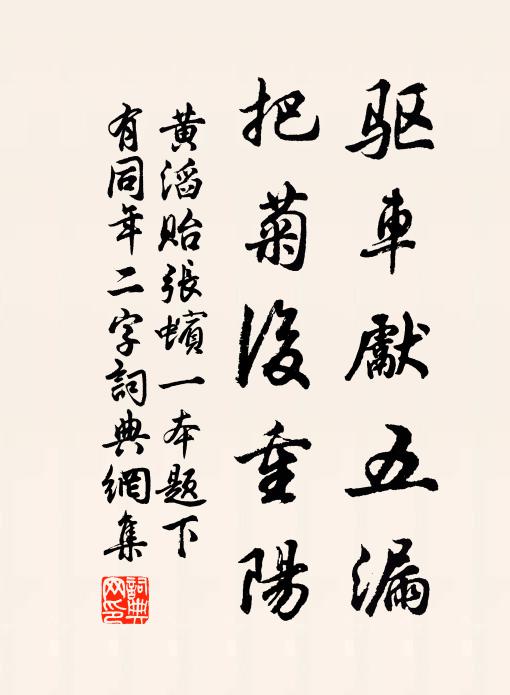 驱車獻五漏
把菊後重陽
黄滔貽張蠙一本題下
有同年二字詞典網集
詞典网印